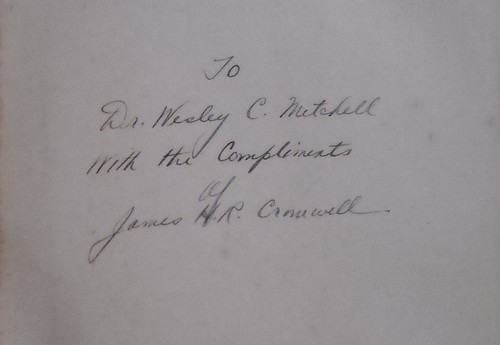 To
Dr. Wesley C. Mitchell
With the Compliments
of
James H.R. Cromwell